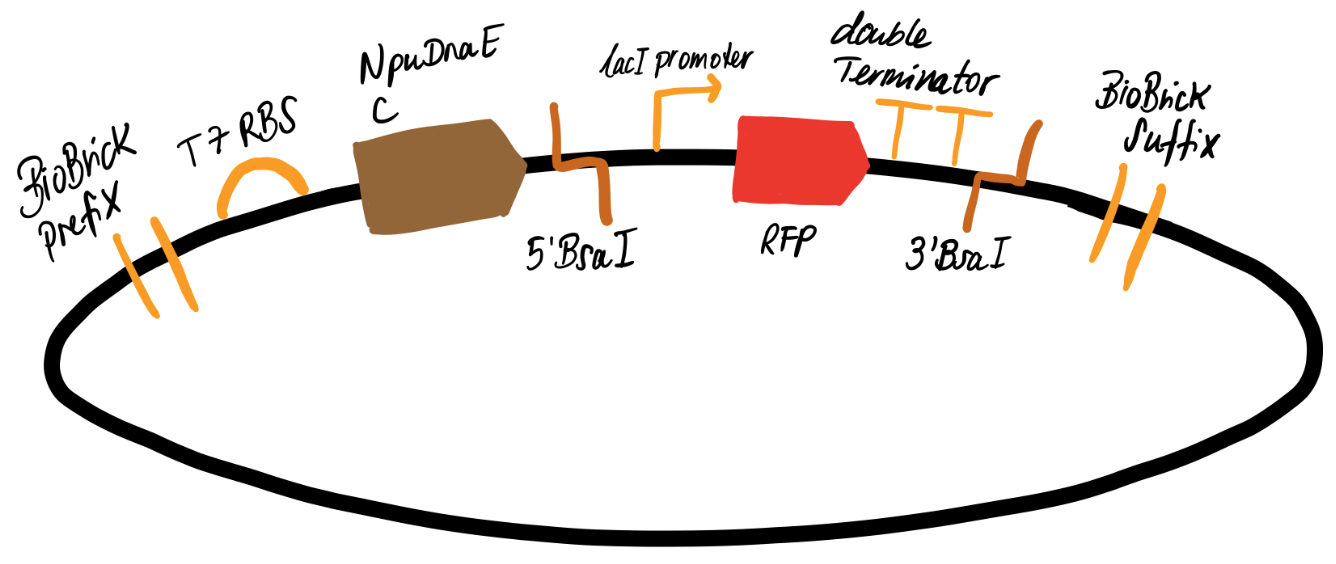 BioBrick
prefix
T7 RBS
NpuDnaE
C
5'BsaI
lacI promoter
RFP
double
Terminator
3'BsaI
BioBrick
Suffix